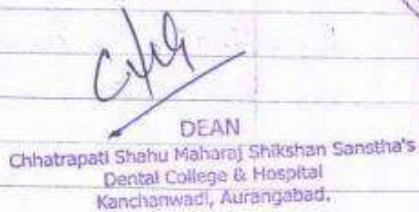 DEAN
Chhatrapati Shahu Maharaj Shikshan Sanstha's
Dental College & Hospital
Kanchanwadi, Aurangabad.